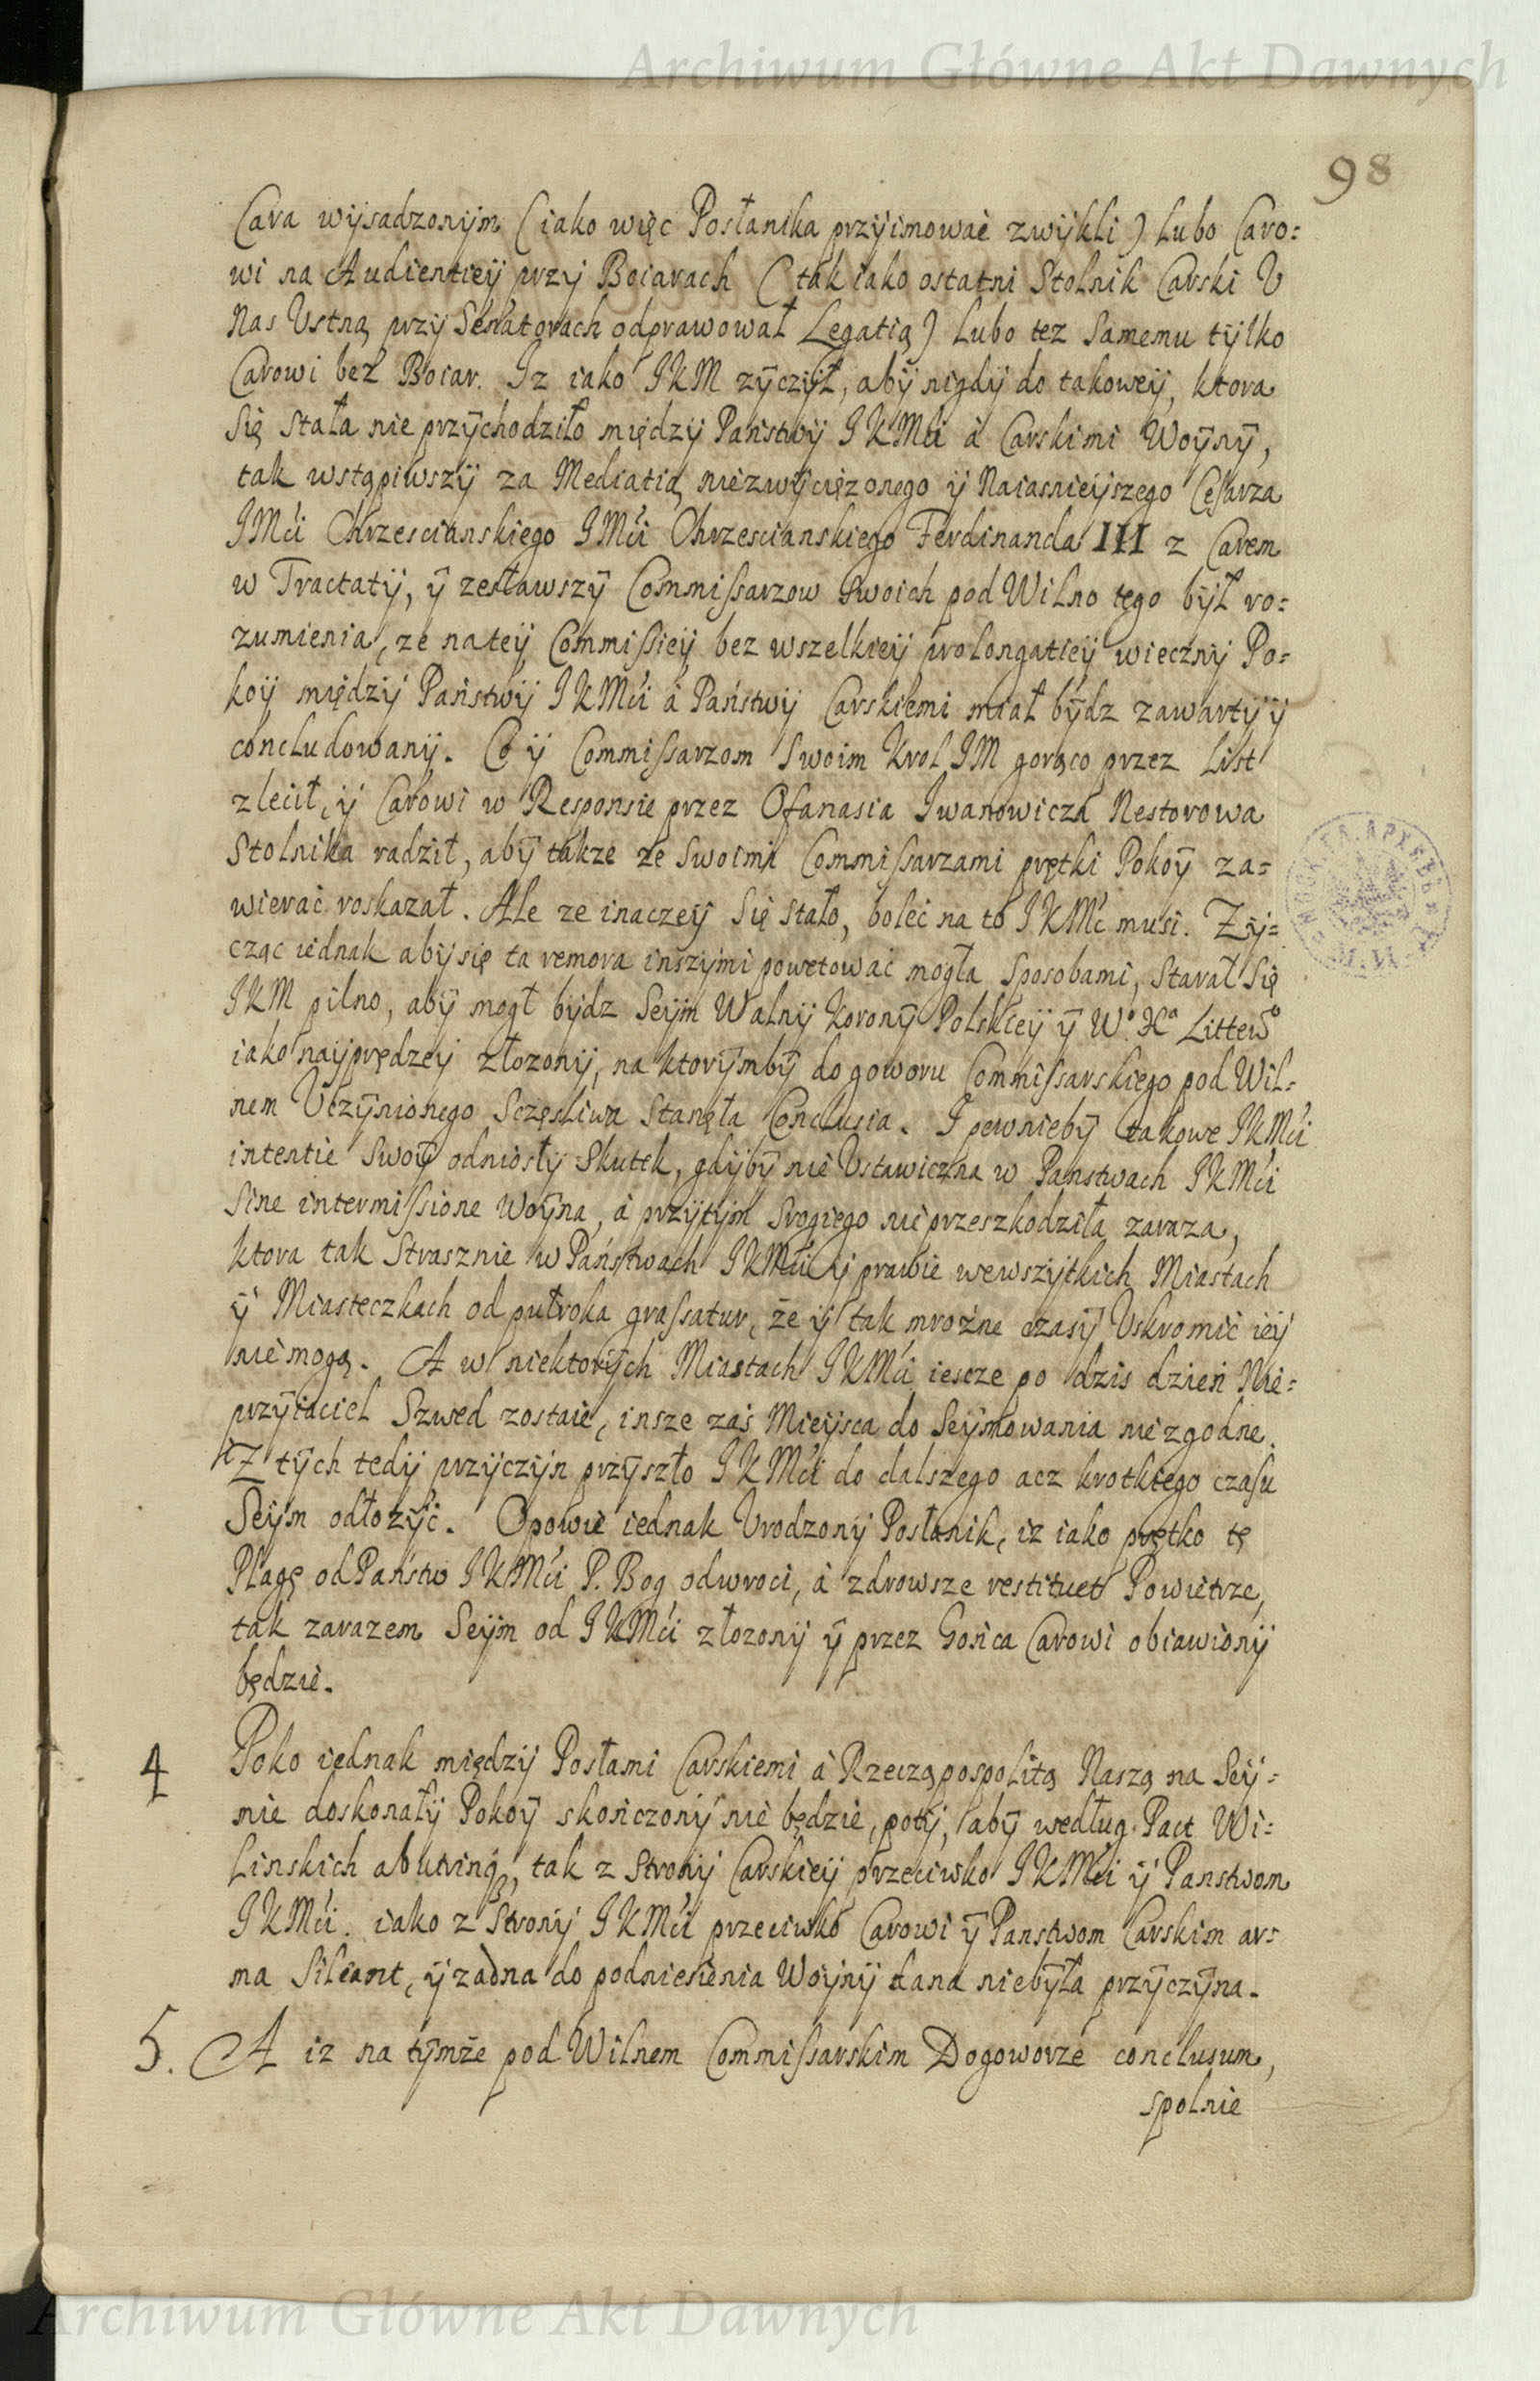 Archiwum Główne Akt Dawnych
98
Cara wysadzonym (iako więc Posłanika przyimowac zwykli) lubo Caro=
wi na Audientiey przy Boiarach (tak iako ostatni Stolnik Carski V
Nas Vstną przy Senatorach odprawował Legatią) lubo tez Samemu tylko
Carowi bez Boiar. Iz iako IKM zyczył, aby nigdy do takowey, ktora
Się Stała nie przychodziło między Państwy IKMći à Carskimi Woyny,
tak wstąpiwszy za Mediatią niezwycięzonego y Naiasnieyszego Cesarza
IMći Chrzescianskiego IMći Chrzescianskiego Ferdinanda III z Carem
w Tractaty, y zesławszy Commissarzow Swoich pod Wilno tego był ro=
zumienia, ze na tey Commissiey bez wszelkiey prolongatiey wieczny Po=
koy między Państwy IKMći à Państwy Carskiemi miał bydz zawarty y
concludowany. Co y Commissarzom Swoim Krol IM gorąco przez List
zlecił, y Carowi w Responsie przez Ofanasia Iwanowicza Nestorowa
Stolnika radził, aby takze ze Swoimi Commissarzami prętki Pokoy za=
wierać roskazał. Ale ze inaczey Się Stało, boleć na to IKMć musi. Zy=
cząc iednak aby się ta remora inszymi powetować mogła Sposobami, Starał Się
IKM pilno, aby mogł bydz Seym Walny Korony Polskiey y Wº Xª Littewº
iako nayprędzey złozony, na ktorymby do goworu Commissarskiego pod Wil=
nem Vczynionego Sczęsliwa Stanęła Conclusia. I pewnieby takowe IKMći
intentie Swoy odniosły Skutek, gdyby nie Vstawiczna w Panstwach IKMći
Sine intermissione Woyna, à przytym Srogiego nie przeszkodziła zaraza,
ktora tak Strasznie w Państwach IKMći y prawie wewszytkich Miastach
y Miasteczkach od pułroka grassatur, że y tak mroźne czasy Vskromić iey
nie mogą. A w niektorych Miastach IKMći iescze po dzis dzień Nie=
przyiaciel Szwed zostaie, insze zaś Mieysca do Seymowania nie zgodne.
Z tych tedy przyczyn przyszło IKMći do dalszego acz krotkiego czasu
Seym odłozyć. Opowie iednak Vrodzony Posłanik, iz iako prętko tę
Plagę od Państw IKMći P. Bog odwroci, à zdrowsze restituet Powietrze,
tak zarazem Seym od IKMći złozony y przez Gońca Carowi obiawiony
będzie.
4 Poko iednak między Posłami Carskiemi à Rzecząpospolitą Naszą na Sey=
mie doskonały Pokoy skończony nie będzie, poty, aby według Pact Wi=
linskich ab utrinq, tak z Strony Carskiey przeciwko IKMći y Panstwom
IKMći. iako z Strony IKMći przeciwko Carowi y Panstwom Carskim ar=
ma Sileant, y zadna do podniesienia Woyny dana niebyła przyczyna.
5. A iz na tymże pod Wilnem Commissarskim Dogoworze conclusum,
spolnie
Archiwum Główne Akt Dawnych